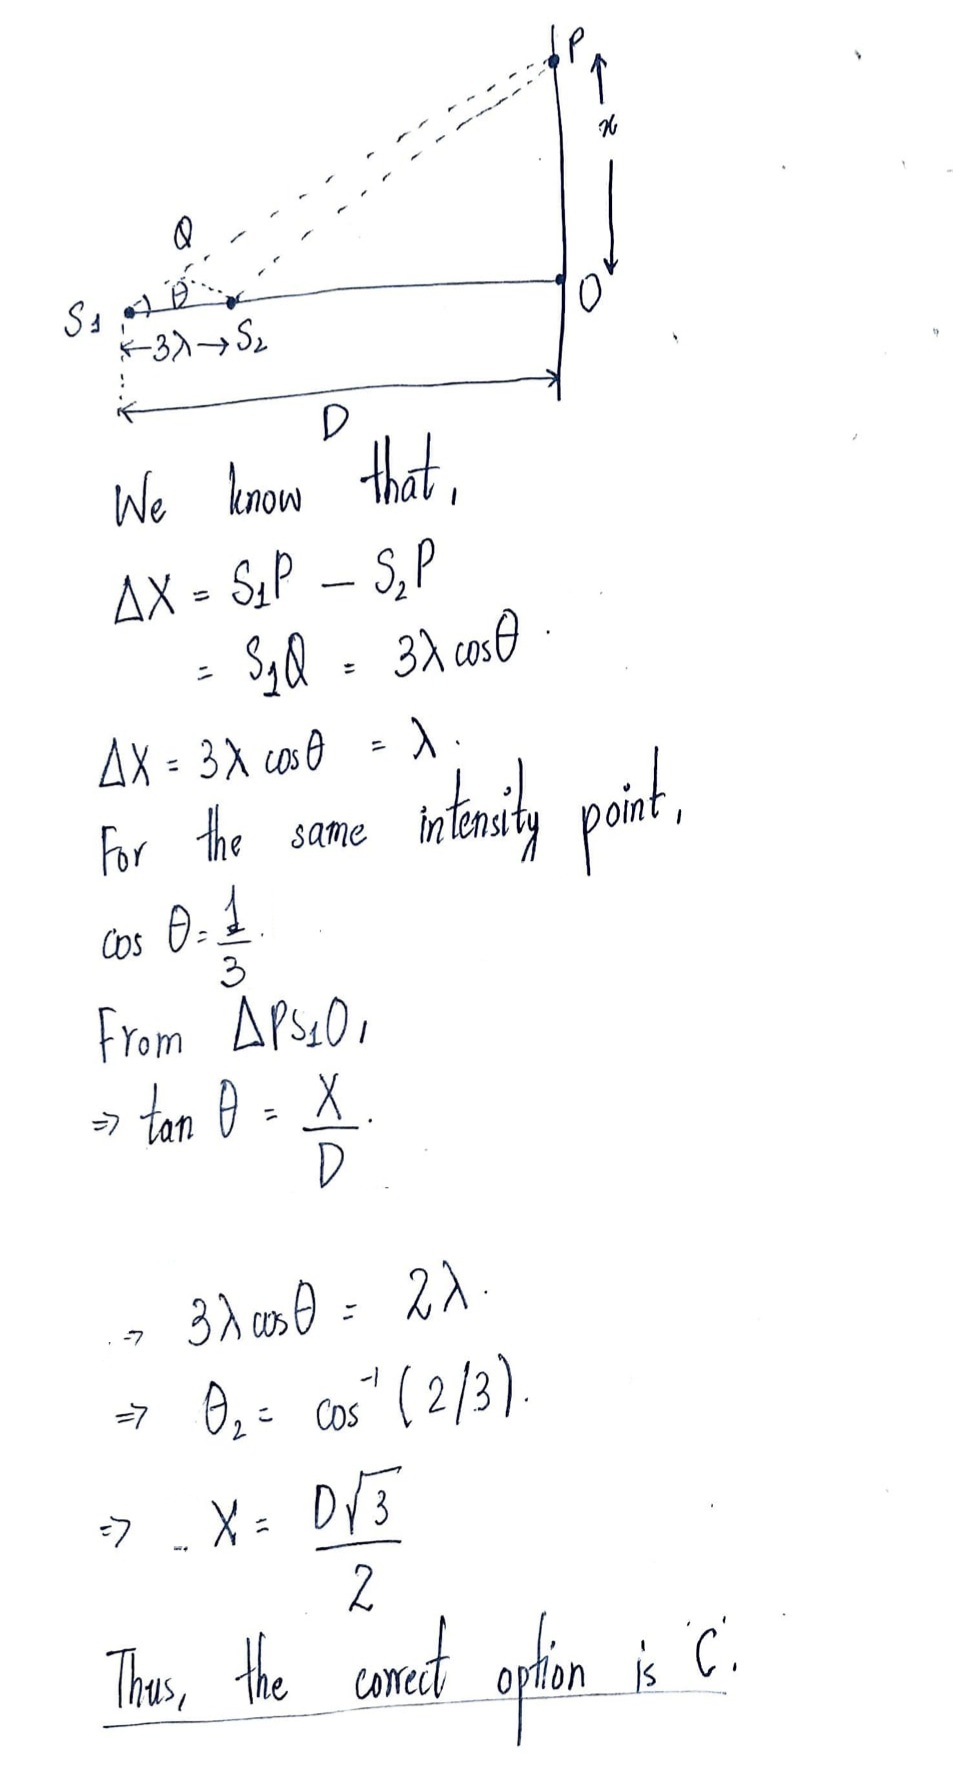 P
x
Q
θ
S₁
O
←3λ→ S₂
D
We know that,
ΔX = S₁P − S₂P
= S₁Q = 3λ cosθ
ΔX = 3λ cosθ = λ.
For the same intensity point,
cos θ = 1/3.
From ΔPS₁O,
⇒ tan θ = X/D.
⇒ 3λ cosθ = 2λ.
⇒ θ₂ = cos⁻¹ (2/3).
⇒ X = D√3/2
Thus, the correct option is 'C'.